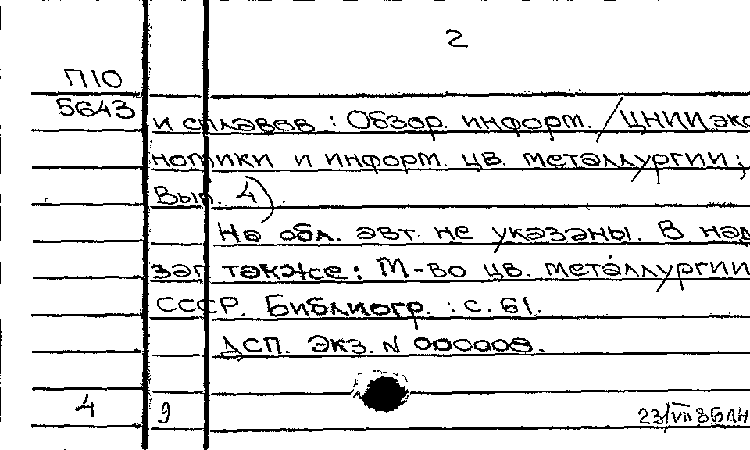 2
П10
5643
и сплавов : Обзор. информ. / ЦНИИ эко
номики и информ. цв. металлургии;
Вып. 4)
На обл. авт. не указаны. В над
заг. также: М-во цв. металлургии
СССР. Библиогр. : с. 61.
ДСП. Экз. N 000008.
4 9